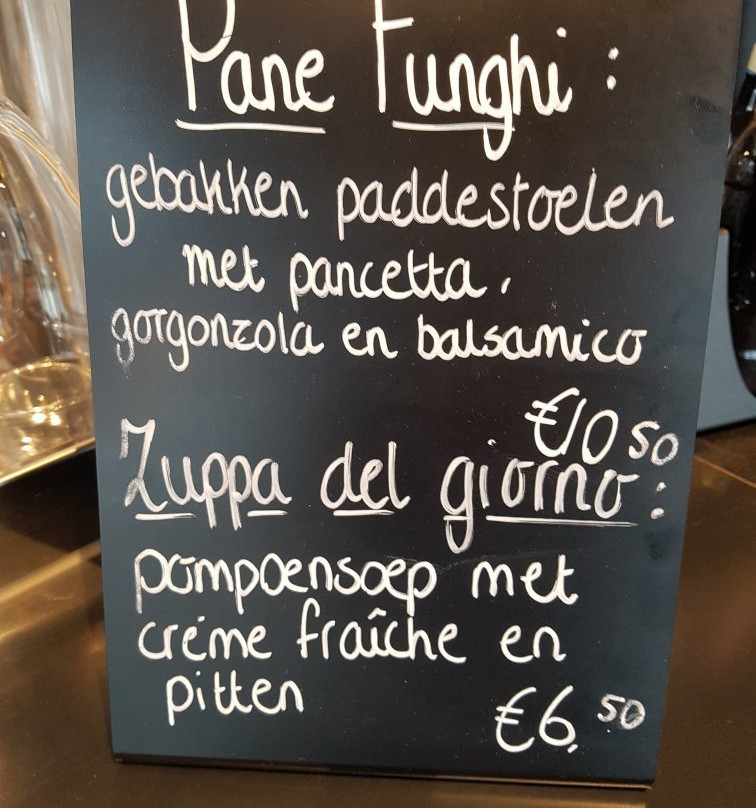 Pane Funghi :
gebakken paddestoelen
met pancetta,
gorgonzola en balsamico
€10 50
Zuppa del giorno :
pompoensoep met
créme fraîche en
pitten
€6, 50